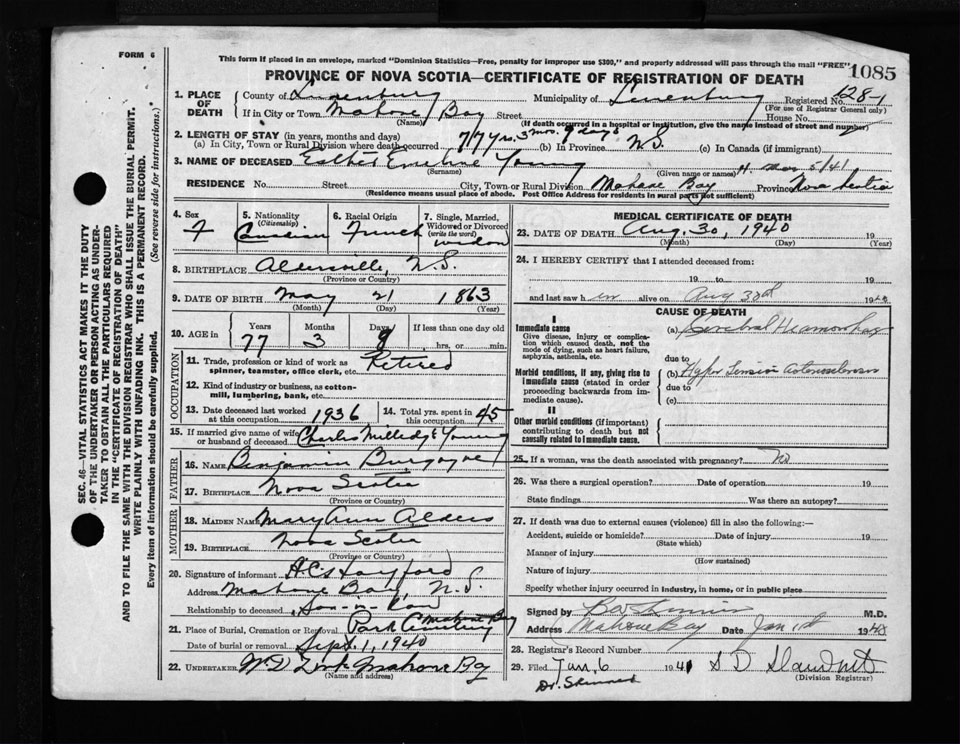 FORM 6
This form if placed in an envelope, marked "Dominion Statistics—Free, penalty for improper use $300," and properly addressed will pass through the mail "FREE"
1085
PROVINCE OF NOVA SCOTIA—CERTIFICATE OF REGISTRATION OF DEATH
1. PLACE OF DEATH
County of Lunenburg Municipality of Lunenburg Registered No. 128-1
(For use of Registrar General only)
If in City or Town Mahone Bay Street House No.
(Name) (If death occurred in a hospital or institution, give the name instead of street and number)
2. LENGTH OF STAY (in years, months and days)
(a) In City, Town or Rural Division where death occurred 77 yrs. 3 mos. 9 days (b) In Province N.S. (c) In Canada (if immigrant)
3. NAME OF DECEASED Esther Emeline Young
(Surname) (Given name or names)
RESIDENCE No. Street City, Town or Rural Division Mahone Bay Province Nova Scotia
(Residence means usual place of abode. Post Office Address for residents in rural parts not sufficient)
4. Sex
F
5. Nationality (Citizenship)
Canadian
6. Racial Origin
French
7. Single, Married, Widowed or Divorced (write the word)
widow
8. BIRTHPLACE N.S.
(Province or Country)
9. DATE OF BIRTH May 21 1863
(Month) (Day) (Year)
10. AGE in
Years Months Days If less than one day old
77 3 9 hrs. or min.
OCCUPATION
11. Trade, profession or kind of work as spinner, teamster, office clerk, etc. Retired
12. Kind of industry or business, as cotton-mill, lumbering, bank, etc.
13. Date deceased last worked at this occupation 1936
14. Total yrs. spent in this occupation 45
15. If married give name of wife or husband of deceased Charles Milledge Young
FATHER
16. NAME Benjamin Burgoyne
17. BIRTHPLACE Nova Scotia
(Province or Country)
MOTHER
18. MAIDEN NAME Mary Ann Alders
19. BIRTHPLACE Nova Scotia
(Province or Country)
20. Signature of informant
Address Mahone Bay, N.S.
Relationship to deceased Son-in-law
21. Place of Burial, Cremation or Removal Park Cemetery Mahone Bay
Date of burial or removal Sept. 1, 1940
22. UNDERTAKER Mahone Bay
(Name and address)
MEDICAL CERTIFICATE OF DEATH
23. DATE OF DEATH Aug. 30, 1940 19
(Month) (Day) (Year)
24. I HEREBY CERTIFY that I attended deceased from:
19 to 19
and last saw h er alive on Aug 30th 19
CAUSE OF DEATH
I
Immediate cause
Give disease, injury or complication which caused death, not the mode of dying, such as heart failure, asphyxia, asthenia, etc.
(a) Cerebral Heamorrhage
due to
Morbid conditions, if any, giving rise to immediate cause (stated in order proceeding backwards from immediate cause).
(b) Hyper Tension
due to
(c)
II
Other morbid conditions (if important) contributing to death but not causally related to immediate cause.
25. If a woman, was the death associated with pregnancy? No
26. Was there a surgical operation? Date of operation 19
State findings Was there an autopsy?
27. If death was due to external causes (violence) fill in also the following:—
Accident, suicide or homicide? Date of injury 19
(State which)
Manner of injury
(How sustained)
Nature of injury
Specify whether injury occurred in industry, in home, or in public place
Signed by M.D.
Address Mahone Bay Date Jan 19
28. Registrar's Record Number
29. Filed Jan. 6 1941
(Division Registrar)
Dr. Skinner
SEC. 46—VITAL STATISTICS ACT MAKES IT THE DUTY
OF THE UNDERTAKER OR PERSON ACTING AS UNDER-
TAKER TO OBTAIN ALL THE PARTICULARS REQUIRED
IN THE "CERTIFICATE OF REGISTRATION OF DEATH"
AND TO FILE THE SAME WITH THE DIVISION REGISTRAR WHO SHALL ISSUE THE BURIAL PERMIT.
WRITE PLAINLY WITH UNFADING INK. THIS IS A PERMANENT RECORD.
Every item of information should be carefully supplied. (See reverse side for instructions.)